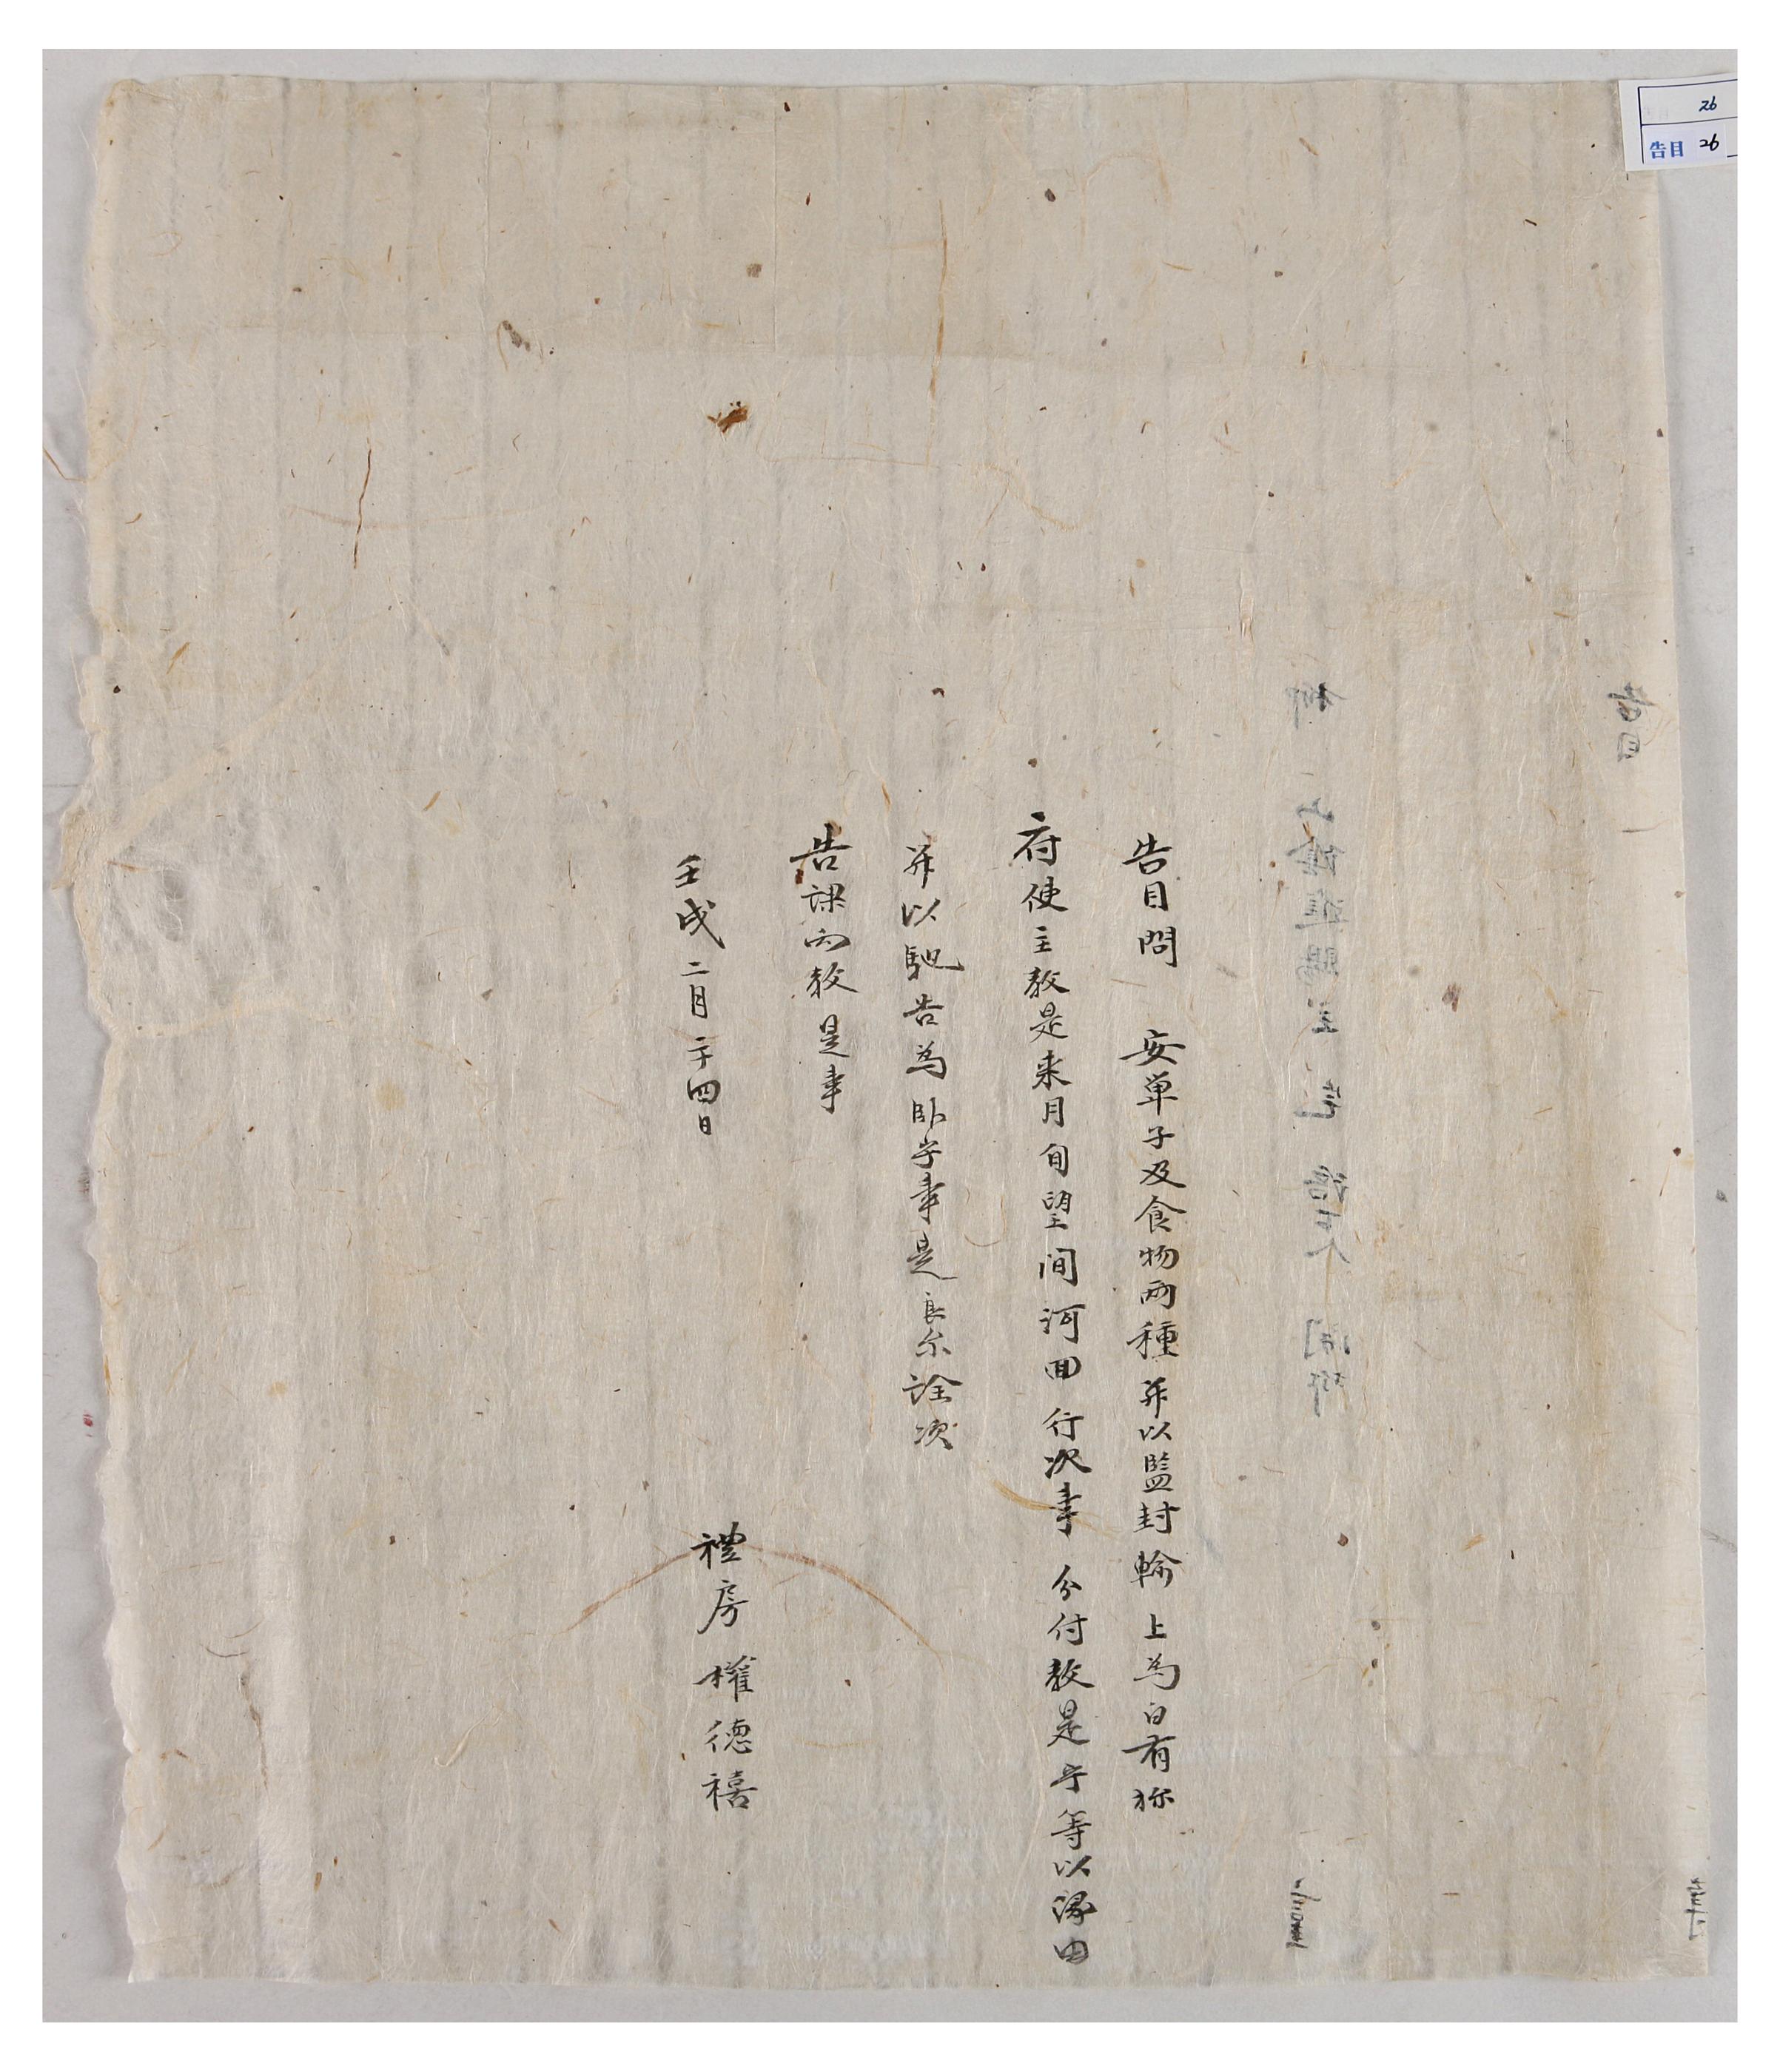 26
告目 26
告目
柳 山 進賜主 宅
告目問 安單子及食物兩種並以監封輸 上爲白有旀
府使主教是來月旬望間河回 行次事 分付教是乎等以緣由
並以馳告爲卧乎事是良尒詮次
告課向教是事
壬戌二月二十四日
禮房 權德禧